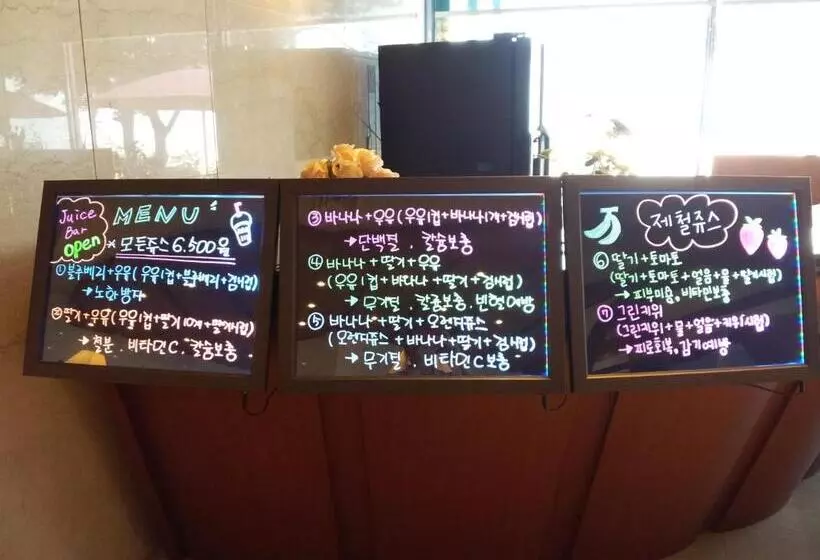 Juice
Bar
Open
MENU
* 모든쥬스 6.500원
① 블루베리+우유(우유1컵+블루베리+검시럽)
→ 노화방지
② 딸기+우유(우유1컵+딸기10개+딸기시럽)
→ 철분. 비타민C. 칼슘보충
③ 바나나+우유(우유1컵+바나나1개+검시럽)
→ 단백질. 칼슘보충
④ 바나나+딸기+우유
(우유1컵+바나나+딸기+검시럽)
→ 무기질. 칼슘보충. 빈혈예방
⑤ 바나나+딸기+오렌지쥬스
(오렌지쥬스+바나나+딸기+검시럽)
→ 무기질. 비타민C보충
제철쥬스
⑥ 딸기+토마토
(딸기+토마토+얼음+물+딸기시럽)
→ 피부미용, 비타민보충
⑦ 그린키위
(그린키위+물+얼음+키위시럽)
→ 피로회복, 감기예방